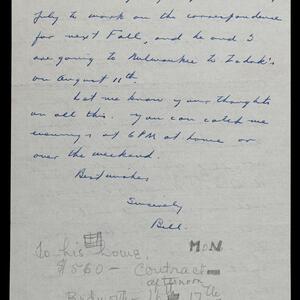 July to work on the correspondence
for next Fall, and he and I
are going to Milwaukee to
on August 11th.
Let me know your thoughts
on all this. You can catch me
evenings at 6 PM at home or
over the weekend.
Best wishes
Sincerely
Bill
To his home. MON
$560 - Contract
afternoon
17th